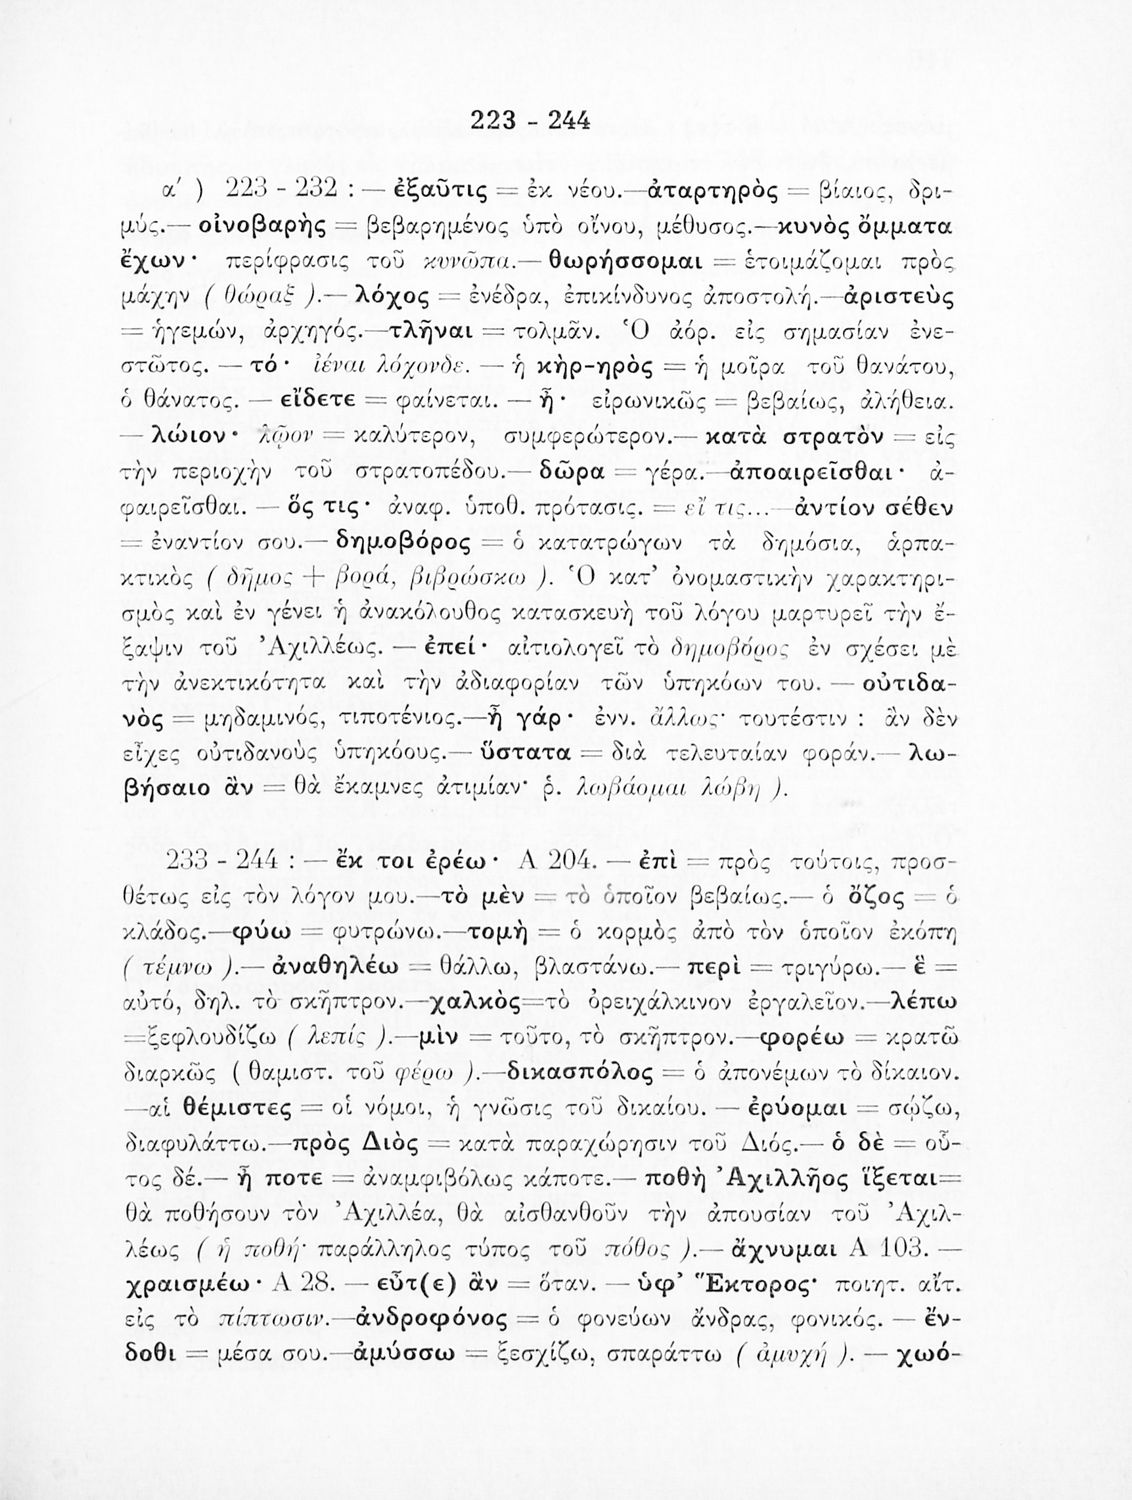 223 - 244
α′ ) 223 - 232 : — ἐξαῦτις = ἐκ νέου.—ἀταρτηρὸς = βίαιος, δρι-
μύς.— οἰνοβαρὴς = βεβαρημένος ὑπὸ οἴνου, μέθυσος.—κυνὸς ὄμματα
ἔχων· περίφρασις τοῦ κυνῶπα.— θωρήσσομαι = ἑτοιμάζομαι πρὸς
μάχην ( θώραξ ).— λόχος = ἐνέδρα, ἐπικίνδυνος ἀποστολή.—ἀριστεὺς
= ἡγεμών, ἀρχηγός.—τλῆναι = τολμᾶν. Ὁ ἀόρ. εἰς σημασίαν ἐνε-
στῶτος. — τό· ἰέναι λόχονδε. — ἡ κὴρ-ηρὸς = ἡ μοῖρα τοῦ θανάτου,
ὁ θάνατος. — εἴδετε = φαίνεται. — ἦ· εἰρωνικῶς = βεβαίως, ἀλήθεια.
— λώιον· λῷον = καλύτερον, συμφερώτερον.— κατὰ στρατὸν = εἰς
τὴν περιοχὴν τοῦ στρατοπέδου.— δῶρα = γέρα.—ἀποαιρεῖσθαι· ἀ-
φαιρεῖσθαι. — ὅς τις· ἀναφ. ὑποθ. πρότασις. = εἴ τις...—ἀντίον σέθεν
= ἐναντίον σου.— δημοβόρος = ὁ κατατρώγων τὰ δημόσια, ἁρπα-
κτικὸς ( δῆμος + βορά, βιβρώσκω ). Ὁ κατ’ ὀνομαστικὴν χαρακτηρι-
σμὸς καὶ ἐν γένει ἡ ἀνακόλουθος κατασκευὴ τοῦ λόγου μαρτυρεῖ τὴν ἔ-
ξαψιν τοῦ Ἀχιλλέως. — ἐπεί· αἰτιολογεῖ τὸ δημοβόρος ἐν σχέσει μὲ
τὴν ἀνεκτικότητα καὶ τὴν ἀδιαφορίαν τῶν ὑπηκόων του. — οὐτιδα-
νὸς = μηδαμινός, τιποτένιος.—ἦ γάρ· ἐνν. ἄλλως· τουτέστιν : ἂν δὲν
εἶχες οὐτιδανοὺς ὑπηκόους.— ὕστατα = διὰ τελευταίαν φοράν.— λω-
βήσαιο ἂν = θὰ ἔκαμνες ἀτιμίαν· ῥ. λωβάομαι λώβη ).
233 - 244 : — ἔκ τοι ἐρέω· Α 204. — ἐπὶ = πρὸς τούτοις, προσ-
θέτως εἰς τὸν λόγον μου.—τὸ μὲν = τὸ ὁποῖον βεβαίως.— ὁ ὄζος = ὁ
κλάδος.—φύω = φυτρώνω.—τομὴ = ὁ κορμὸς ἀπὸ τὸν ὁποῖον ἐκόπη
( τέμνω ).— ἀναθηλέω = θάλλω, βλαστάνω.— περὶ = τριγύρω.— ἓ =
αὐτό, δηλ. τὸ σκῆπτρον.—χαλκὸς=τὸ ὀρειχάλκινον ἐργαλεῖον.—λέπω
=ξεφλουδίζω ( λεπίς ).—μὶν = τοῦτο, τὸ σκῆπτρον.—φορέω = κρατῶ
διαρκῶς ( θαμιστ. τοῦ φέρω ).—δικασπόλος = ὁ ἀπονέμων τὸ δίκαιον.
—αἱ θέμιστες = οἱ νόμοι, ἡ γνῶσις τοῦ δικαίου. — ἐρύομαι = σῴζω,
διαφυλάττω.—πρὸς Διὸς = κατὰ παραχώρησιν τοῦ Διός.— ὁ δὲ = οὗ-
τος δέ.— ἦ ποτε = ἀναμφιβόλως κάποτε.— ποθὴ Ἀχιλλῆος ἵξεται=
θὰ ποθήσουν τὸν Ἀχιλλέα, θὰ αἰσθανθοῦν τὴν ἀπουσίαν τοῦ Ἀχιλ-
λέως ( ἡ ποθή· παράλληλος τύπος τοῦ πόθος ).— ἄχνυμαι Α 103. —
χραισμέω· Α 28. — εὖτ(ε) ἂν = ὅταν. — ὑφ’ Ἕκτορος· ποιητ. αἴτ.
εἰς τὸ πίπτωσιν.—ἀνδροφόνος = ὁ φονεύων ἄνδρας, φονικός. — ἔν-
δοθι = μέσα σου.—ἀμύσσω = ξεσχίζω, σπαράττω ( ἀμυχή ). — χωό-